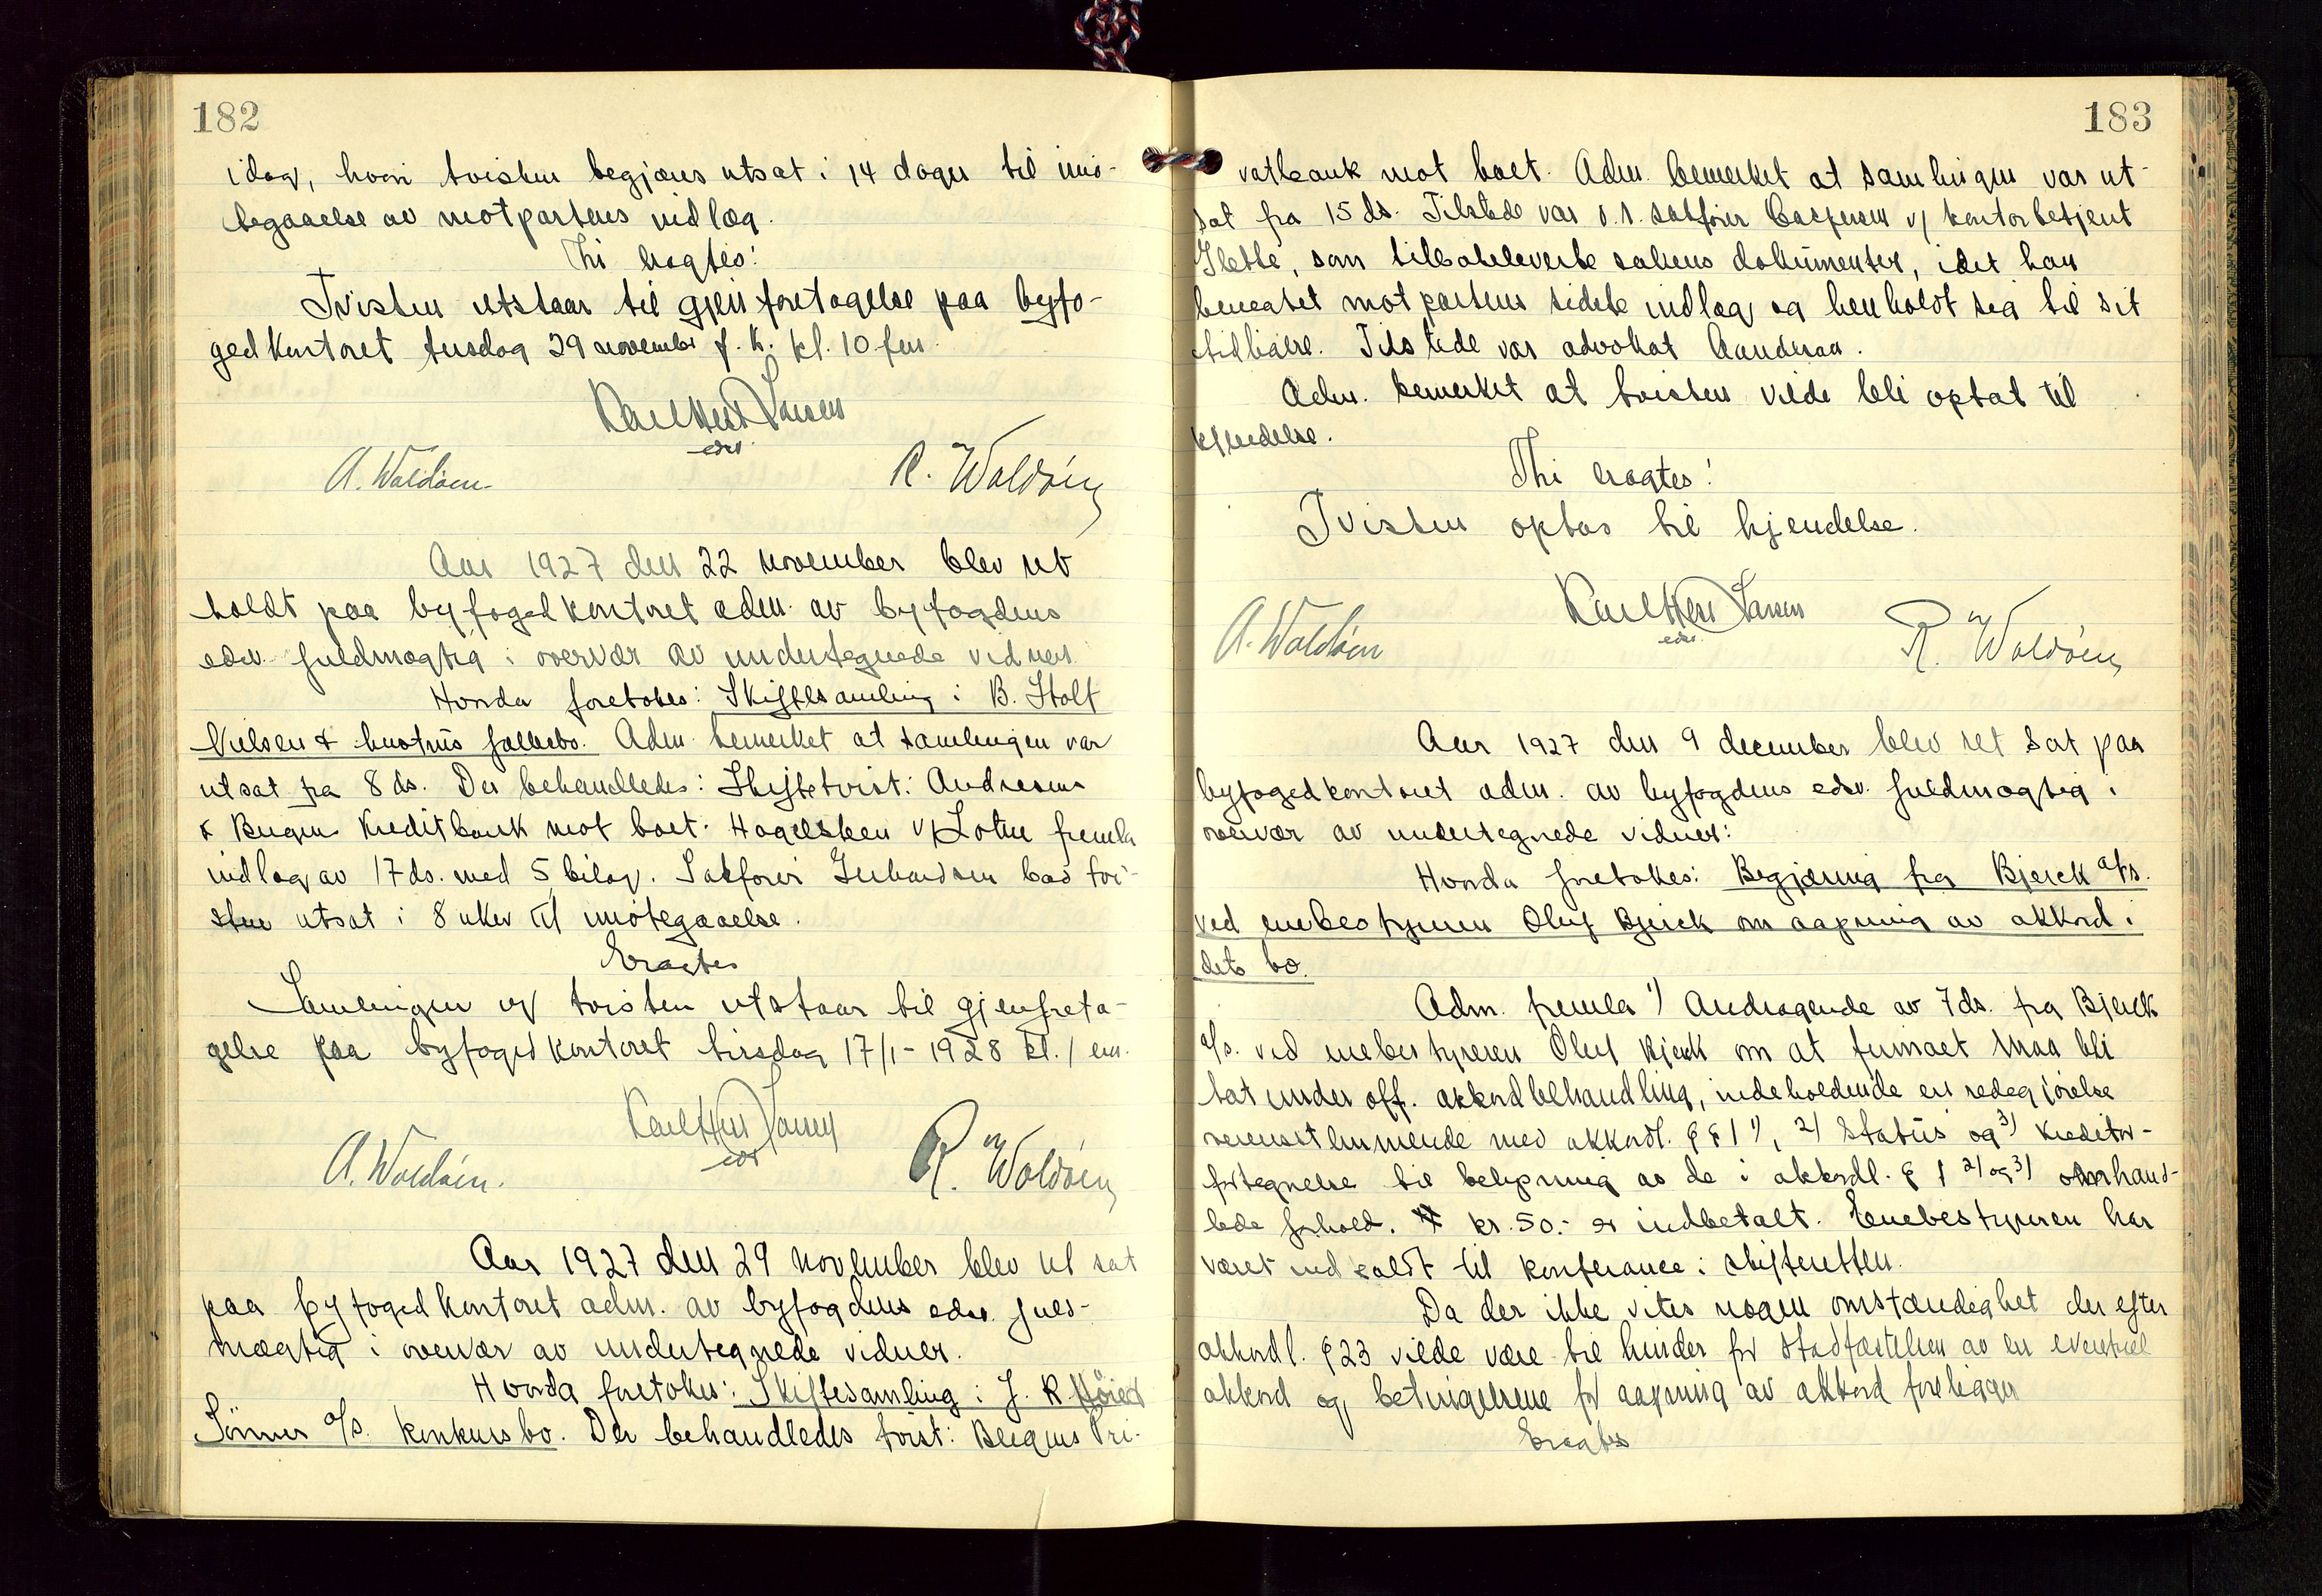 182
idag, hvori tvisten begjæres utsat i 14 dager til imø-
tegaaelse av motpartens indlæg.
Thi eragtes:
Tvisten utstaar til gjenforetagelse paa byfo-
gedkontoret tirsdag 29 november f. k. kl. 10 fm.
Karl Larsen
edsv
A. Waldøen R. Waldøen
Aar 1927 den 22 november blev ret
holdt paa byfogedkontoret adm. av byfogdens
edsv. fuldmægtig i overvær av undertegnede vidner.
Hvorda foretokes: Skiftesamling i B. Stolt
Nielsen & hustrus fallebo. Adm. bemerket at samlingen var
utsat fra 8 ds. Der behandledes: Skiftetvist: Andresens
& Bergens Kreditbank mot boet. Hagelsteen v/ Lothe fremla
indlæg av 17 ds. med 5 bilag. Sakfører Gerhardsen bad tvi-
sten utsat i 8 uker til imøtegaaelse.
Eragtes
Samlingen og tvisten utstaar til gjenforeta-
gelse paa byfogedkontoret tirsdag 17/1-1928 kl. 1 em.
Karl Larsen
edsv
A. Waldøen. R. Waldøen
Aar 1927 den 29 november blev ret sat
paa byfogedkontoret adm. av byfogdens edsv. fuld-
mægtig i overvær av undertegnede vidner.
Hvorda foretokes: Skiftesamling i J. R.
Sønner a/s. konkursbo. Der behandledes tvist: Bergens Pri-
183
vatbank mot boet. Adm. bemerket at samlingen var ut-
sat fra 15 ds. Tilstede var o.r. sakfører Caspersen v/ kontorbetjent
Slette, som tilbakeleverte sakens dokumenter, idet han
benegtet motpartens sidste indlæg og henholdt sig til sit
tidligere. Tilstede var advokat Aanderaa.
Adm. bemerket at tvisten vilde bli optat til
kjendelse.
Thi eragtes!
Tvisten optas til kjendelse.
Karl Larsen
edsv.
A. Waldøen R. Waldøen
Aar 1927 den 9 december blev ret sat paa
byfogedkontoret adm. av byfogdens edsv. fuldmægtig i
overvær av undertegnede vidner:
Hvorda foretokes: Begjæring fra Bjerck a/s.
ved enebestyreren Oluf Bjerck om aapning av akkord i
dets bo.
Adm. fremla 1) Andragende av 7 ds. fra Bjerck
a/s. ved enebestyreren Oluf Bjerck om at firmaet maa bli
tat under off. akkordbehandling, indeholdende en redegjørelse
overensstemmende med akkordl. § 1 1), 2) Status og 3) kreditor-
fortegnelse til belysning av de i akkordl. § 1 2) og 3) omhand-
lede forhold. kr. 50.- er indbetalt. Enebestyreren har
været indkaldt til konferance i skifteretten.
Da der ikke vites nogen omstændighet der efter
akkordl. § 23 vilde være til hinder for stadfæstelsen av en eventuel
akkord og betingelsene for aapning av akkord foreligger
Eragtes